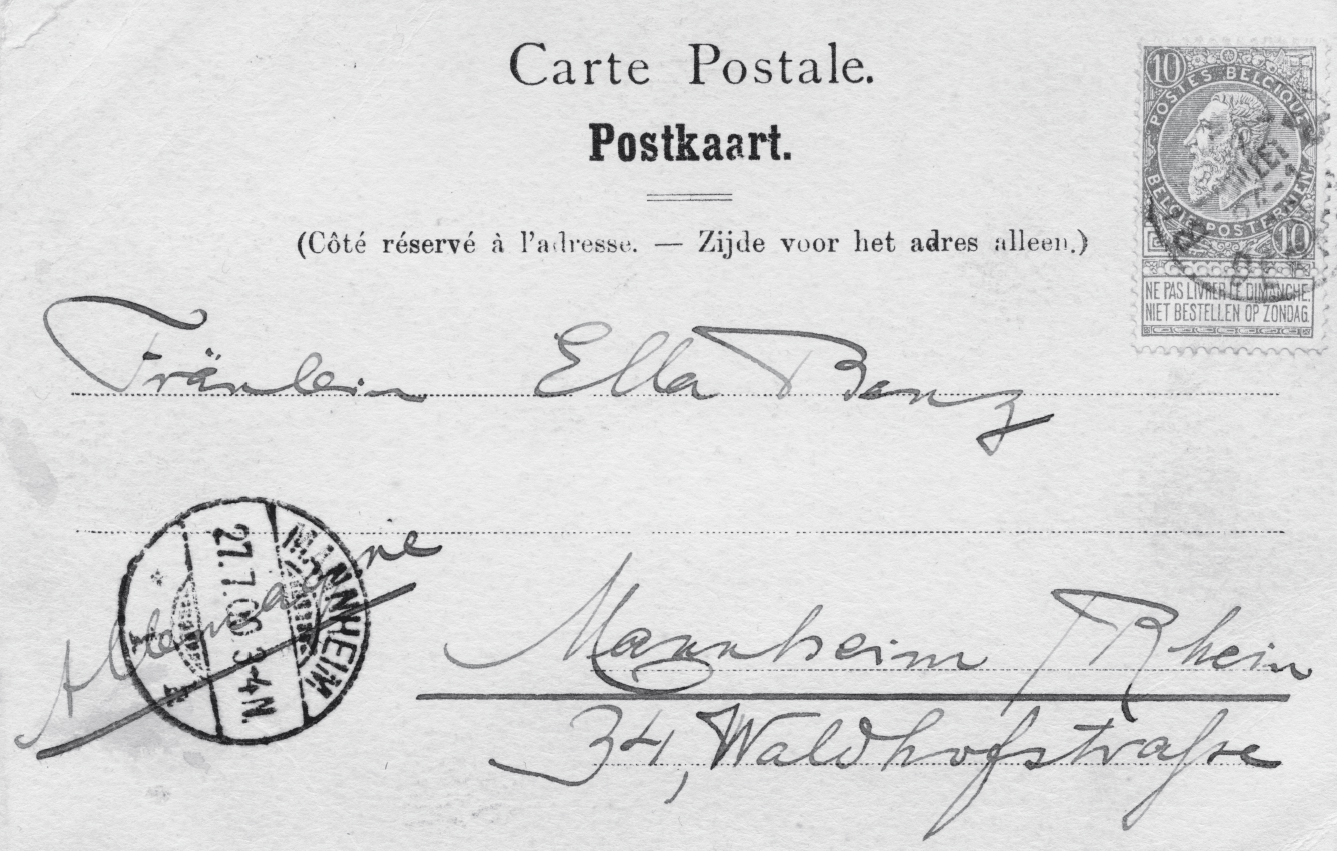 Carte Postale.
Postkaart.
(Côté réservé à l'adresse. — Zijde voor het adres alleen.)
10
POSTES BELGIQUE
BELGIE POSTERIJEN
10
NE PAS LIVRER LE DIMANCHE.
NIET BESTELLEN OP ZONDAG.
Fräulein Ella Benz
MANNHEIM
27.7.00. 3-4N.
Allemagne
Mannheim Rhein
34, Waldhofstraſse